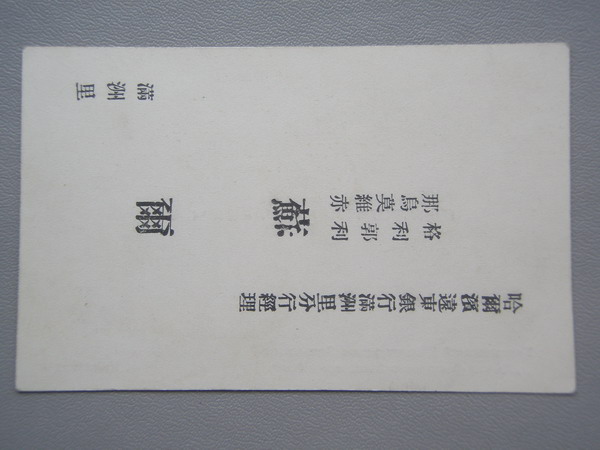 哈爾濱遠東銀行滿洲里分行經理
格利郭利
那烏莫維赤
蘇爾
滿洲里